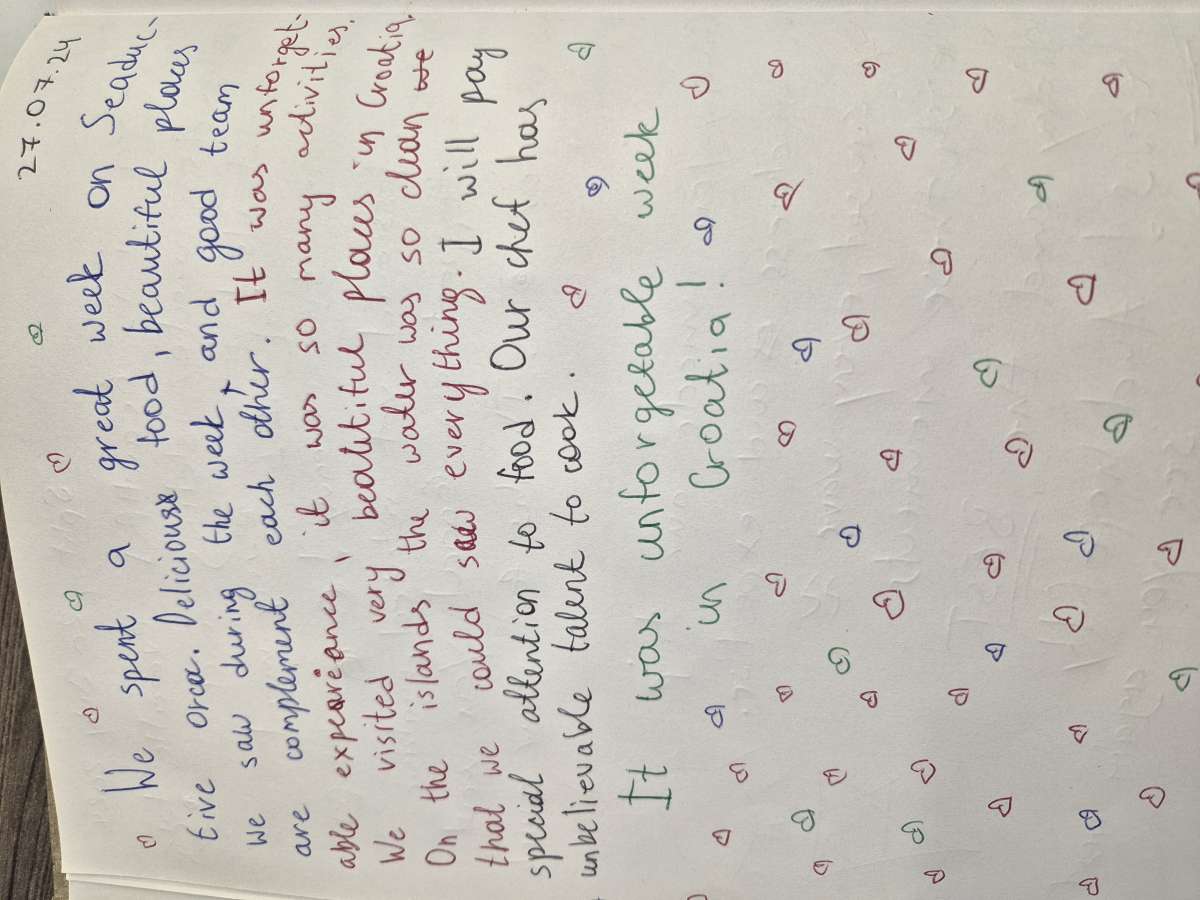 27.07.24
We spent a great week on Seaduc-
tive orca. Delicious food, beautiful places
we saw during the week, and good team
are complement each other. It was unforget-
able expereance, it was so many activities.
We visited very beatiful places in Croatia.
On the islands the water was so clean we
that we could saw everything. I will pay
special attention to food. Our chef has
unbelievable talent to cook.
It was unforgetable week
in Croatia!